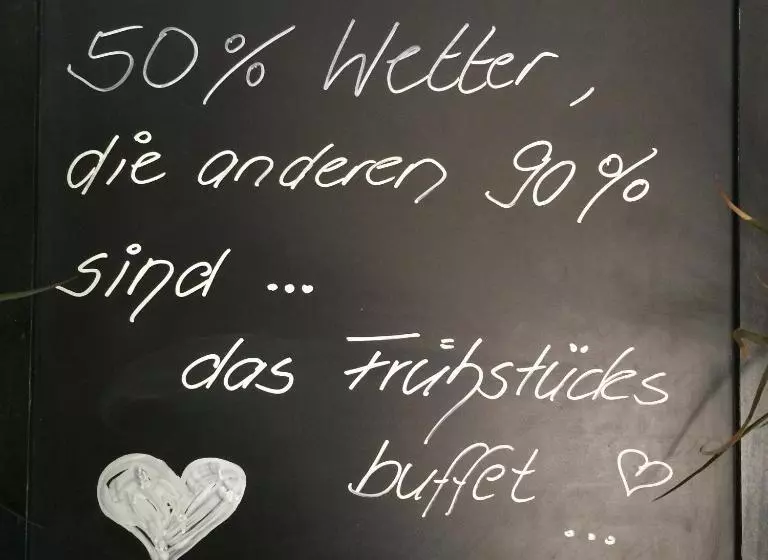 50% Wetter,
die anderen 90%
sind ...
das Frühstücks
buffet ♡
...